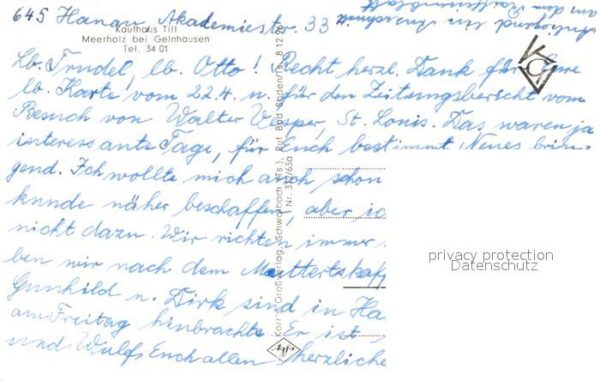 645 Hanau, Akademiestr. 33
Kaufhaus Till
Meerholz bei Gelnhausen
Tel. 34 01
Lb. Trudel, lb. Otto! Recht herzl. Dank für Eure
lb. Karte vom 22.4. u. für den Zeitungsbericht vom
Besuch von Walter St. Louis. Das waren ja
interessante Tage, für Euch bestimmt Neues brin-
gend. Ich wollte mich auch schon
kunde näher beschaffen, aber ic
nicht dazu. Wir richten immer
ben wir nach dem
Gunhild u. Dirk sind in Ha
am Freitag hinbrachte. Er ist
und Wulfs Euch allen herzliche
Nr. 313/65a
privacy protection
Datenschutz